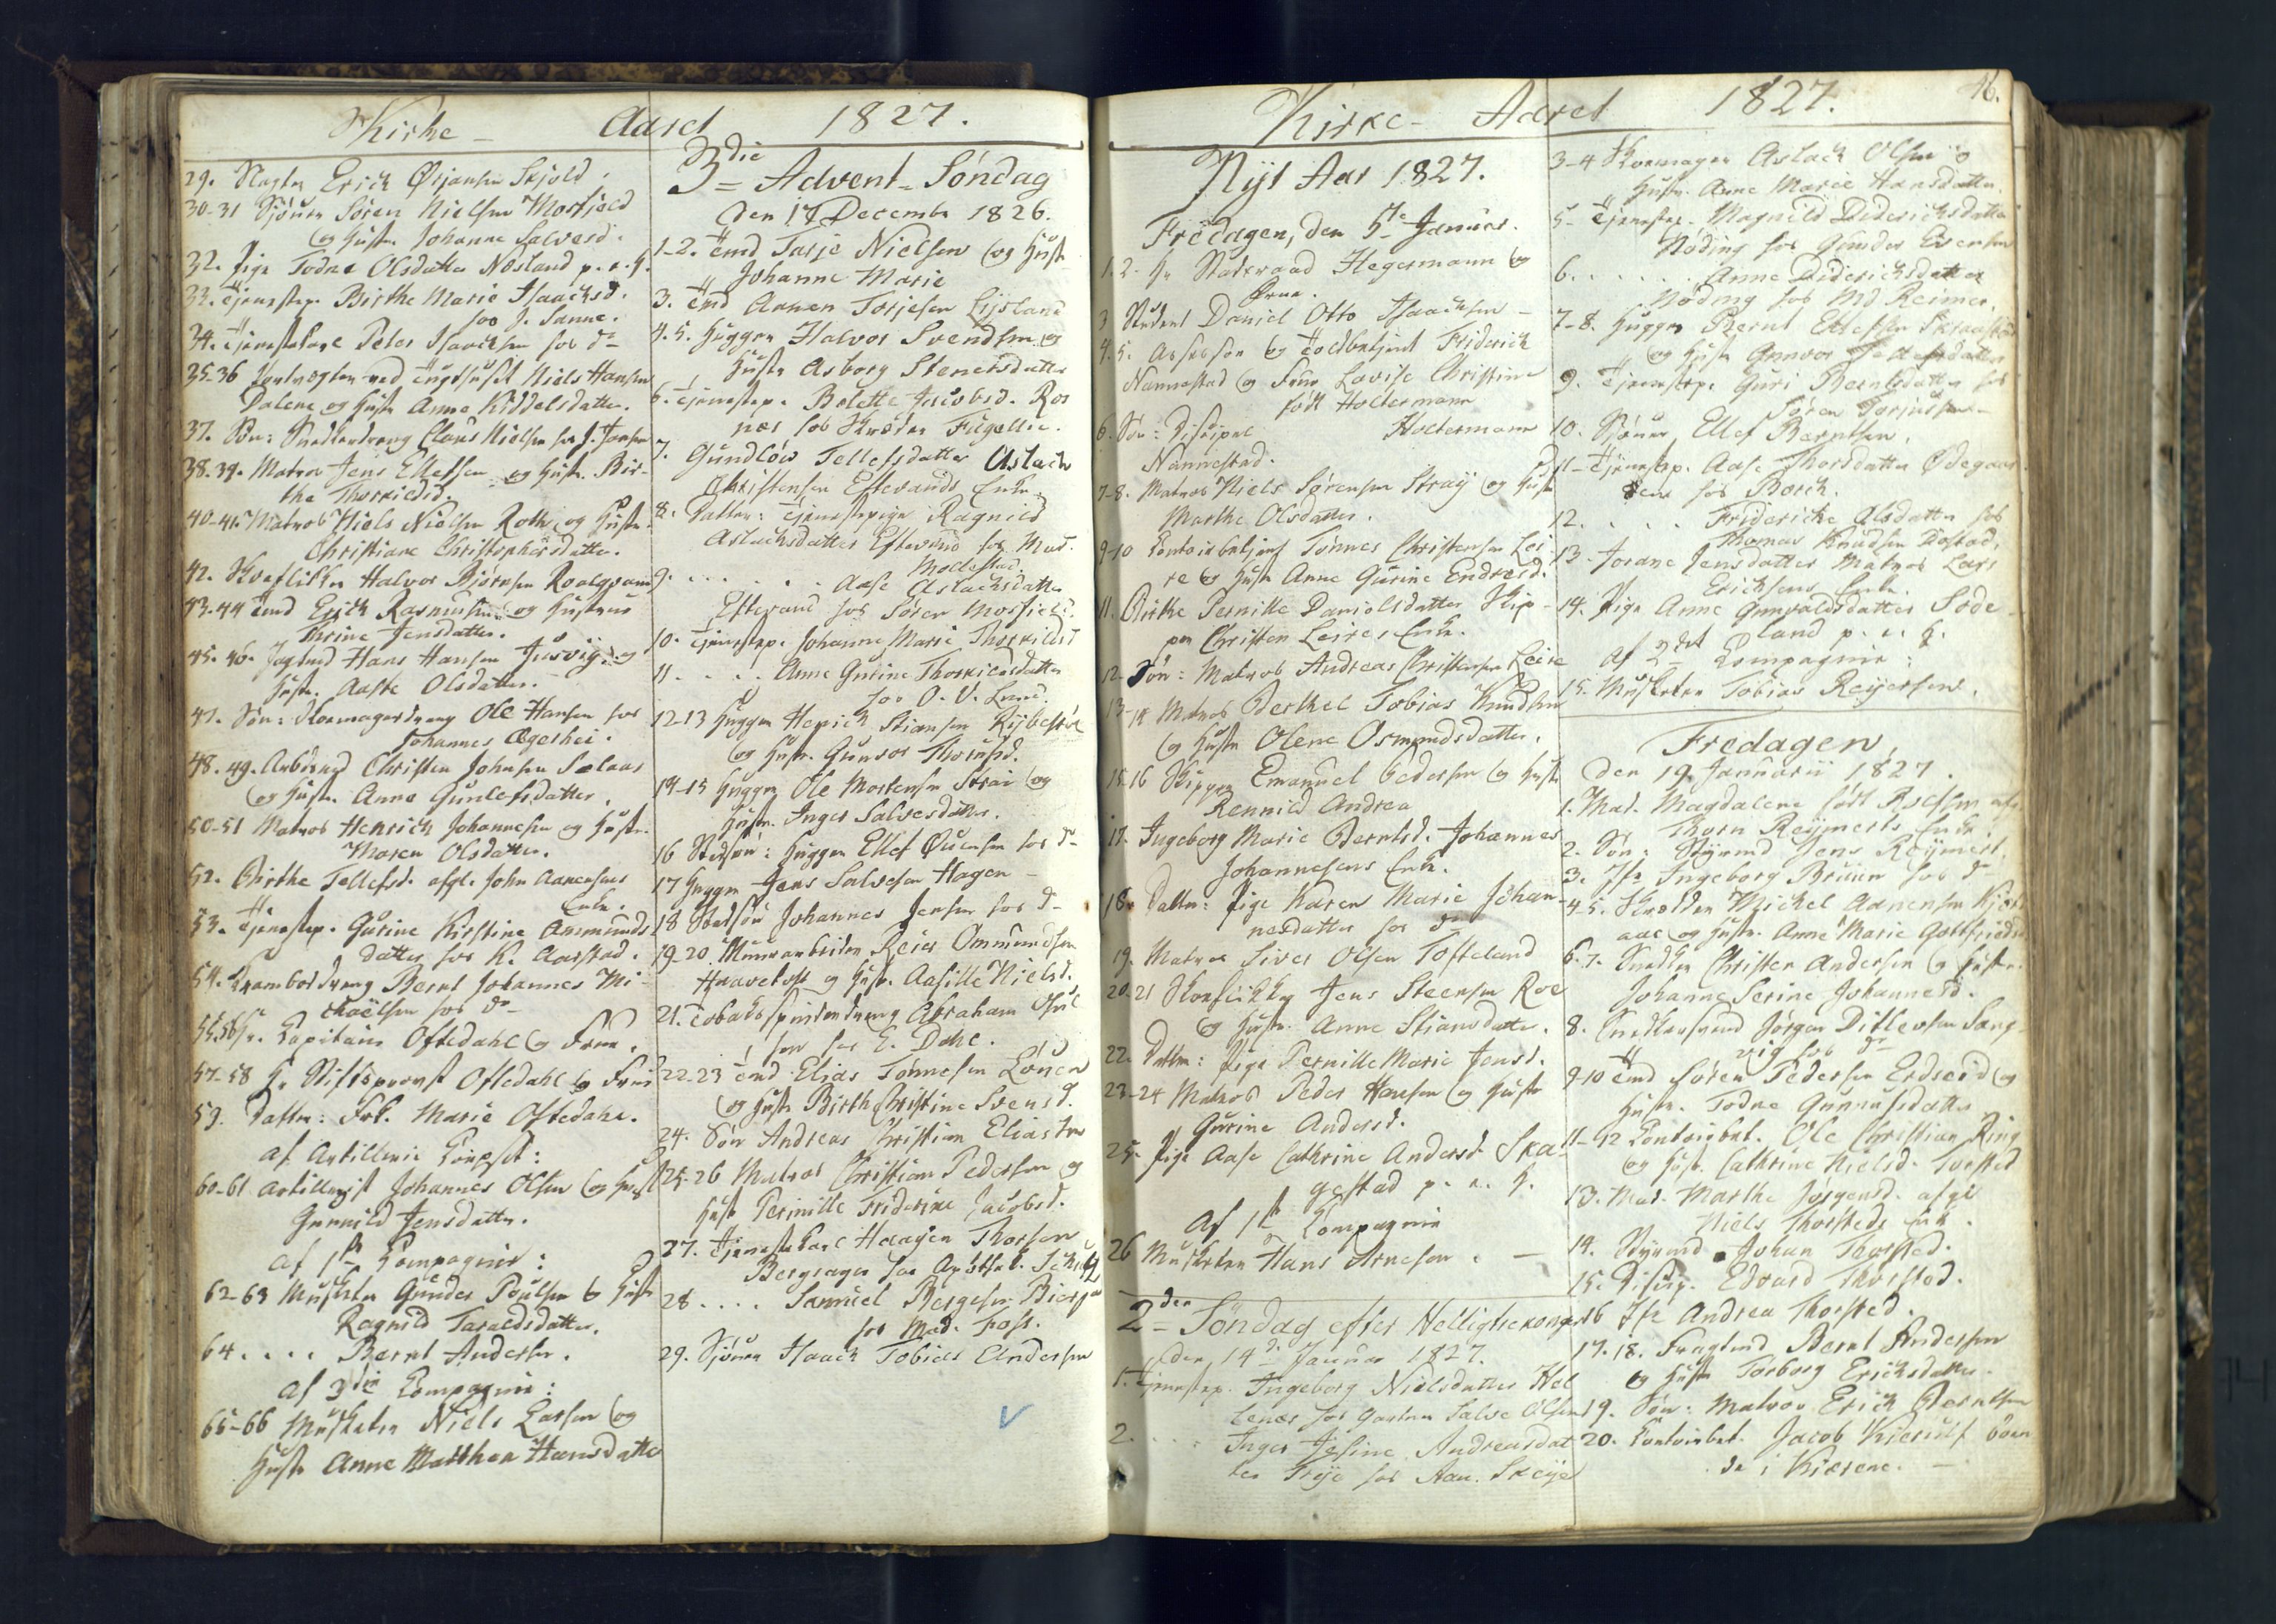 Kirke - Aaret 1827.
29. Erich Ørjansen Skjold.
30-31 Søren Nielsen Mosfjeld
og Hustr. Johanne Salvesd.
32. Pige Todne Olsdatter Nesland p. e. H.
33. Tjenestep. Birthe Marie Isaachsd.
hos J. Sanne.
34. Tjenestekarl Peter Isaachsen hos do
35-36 ved Tugthuset Niels Hansen
Dalene og Hustr. Anne Kiddelsdatter.
37. Søn: Snedkerdreng Claus Nielsen hos J. Jansen
38.39. Matros Jens Ellefsen og Hustr. Bir-
the Thorkildsd.
40-41. Matros Niels Nielsen Roth og Hustr.
Christiane Christophersdatter.
42. Halvor Bjørnsen
43.44 Tmd Erich Rasmussen og Hustrue
Thrine Jensdatter.
45.46. Hans Hansen og
Hustr. Aaste Olsdatter.
47. Søn: Skomagerdreng Ole Hansen hos
Johannes Ægeshei.
48.49. Arbdsmd Christen Johnsen
og Hustr. Anne Gunlefsdatter.
50-51 Matros Henrich Johannesen og Hustr.
Maren Olsdatter.
52. Birthe Tellefsd. afgl. John Aanensens
Enke.
53. Tjenestep. Gurine Kirstine Ammunds
datter hos K. Aarstad.
54. Krambodsvend Bernt Johannes Mi-
chaëlsen hos do
55.56 Hr. Capitain Oftedahl og Frue.
57-58 Hr. Stiftsprovst Oftedahl og Frue
59. Datter: Frk. Marie Oftedahl.
af Artillerie Compgt:
60-61 Artillerist Johannes Olsen og Hustr
Gunnild Jensdatter.
af 1ste Compagnie:
62-63 Musketer Gunder Poulsen og Hustr
Ragnild Taraldsdatter.
64 .... Bernt Andersen.
af 3die Compagnie:
65-66 Musketer Niels Larsen og
Hustr Anne Marthea Hansdatter
3die Advent-Søndag
den 17 December 1826.
1-2. Tmd Tarje Nielsen og Hustr
Johanne Marie
3. Tmd Aanen Torjesen Lysland
4.5. Hugger Halvor Svendsen og
Hustr Asborg Stenersdatter
6. Tjenestep. Bolette Jacobsd. Ros
nes hos Fugellie.
7. Gundlow Tellefsdatter Aslach
Christensen Eftevands Enke.
8. Datter: Tjenestepige Ragnild
Aslachsdatter Eftevand hos Mad.
Modestad.
9. ..... Aase Aslachsdatter
Eftevand hos Søren Mosfield.
10. Tjenestep. Johanne Marie Thorkildsd
11. .... Anne Gurine Thorkildsdatter
hos O. V. Lund.
12-13 Hugger Stiansen
og Hustr. Gunvor Thorsd.
14-15 Hugger Ole Mortensen Strai og
Hustr. Inger Salvesdatter.
16 Stedsøn: Hugger Ellef hos do
17 Hugger Jens Salvesen Hagen -
18 Stedsøn Johannes Jensen hos do
19-20. Muurarbeider Reier Ommundsen
og Hustr. Aasille Nielsd.
21. Tobakspinderdreng Abraham
hos E. Dahl.
22-23 Tmd Elias Tønnesen
og Hustr Birthe Christine Svensd.
24. Søn Andreas Christian Eliassen
25-26 Matros Christian Pedersen og
Hustr Pernille Friderike Jacobsd.
27. Tjenestekarl Haagen Thorsen
Bergsager hos
28 .... Samuel Bergesen
hos Mad. Foss.
29. Isaach Tobias Andersen
Kirke- Aaret 1827. 46.
Nyt Aar 1827.
Fredagen, den 5te Januar.
1.2. Hr Statsraad Hegermann og
Frue.
3 Student Daniel Otto Isaachsen -
4.5. Assessor og Toldbetjent Friderich
Nannestad og Frue Lovise Christine
født Holtermann
6. Søn: Discipel Holtermann
Nannestad.
7-8. Matros Niels Sørensen Stray og Hustr
Marthe Olsdatter.
9-10 Contoirbetjent Tønnes Christensen Lei
re og Hustr Anne Gurine Endresd.
11. Birthe Pernille Danielsdatter Skip-
per Christen Leires Enke.
12. Søn: Matros Andreas Christensen Leire
13-14 Matros Berthel Tobias Knudsen
og Hustr Olene Osmundsdatter.
15.16 Skipper Emanuel Pedersen og Hustr
Rennild Andrea
17. Ingeborg Marie Berntsd. Johannes
Johannesens Enke.
18. Datter: Pige Karen Marie Johan-
nesdatter hos do
19. Matros Siver Olsen Tofteland
20-21 Skoeflikker Jens Steensen Roe
og Hustr. Anne Stiansdatter.
22. Datter: Pige Pernille Marie Jensd.
23-24 Matros Peder Hansen og Hustr
Gurine Andersd.
25. Pige Aase Cathrine Andersd. Ska-
gestad p. e. H.
af 1ste Compagnie
26 Musketer Hans Arnesen. -
2den Søndag efter Helligtrekonger
den 14de Januar 1827.
1. Tjenestep. Ingeborg Nielsdatter
hos Gartner Salve Olsen
2. ... Inger Jesine Andreasdat
ter Frøje hos Aan. Skeije
3-4 Skomager Aslach Olsen og
Hustr. Anne Marie Hansdatter.
5- Tjenestep. Magnild Diderichsdatter
Nøding hos Gunder Evensen
6. ..... Anne Diderichsdatter
Nøding hos Md Reimer.
7-8. Hugger Bernt Ellefsen
og Hustr Gunvor Tellefsdatter
9. Tjenestep. Guri Berntsdatter hos
Søren Torjussen
10. Ellef Berntsen.
11- Tjenestep. Aase Thorsdatter Ødegaar
den hos Borch.
12. .... Friderikke Olsdatter hos
Thomas Knudsen
13. Jorane Jensdatter Matros Lars
Erichsens Enke.
14. Pige Anne Gunvaldsdatter Søde
land p. e. H.
af 2det Compagnie:
15. Musketer Tobias Reyersen.
Fredagen,
den 19 Januarii 1827.
1. Mad. Magdalene født afg.
Thorn Reymerts Enke.
2. Søn: Styrmd Jens Reymert.
3. Jfr Ingeborg Bruun hos do
4-5. Mickel Aanensen
aas og Hustr. Anne Marie Gottfriedsd
6.7. Snedker Christen Andersen og Hustr.
Johanne Serine Johannesd.
8. Snedkersvend Jørgen Ditlevsen
vig hos do
9-10 Tmd Søren Pedersen og
Hustr. Todne Gunnufsdatter
11-12 Contoirbet. Ole Christian Ring
og Hustr. Cathrine Nielsd. Torsted
13. Mad. Marthe Jørgensd. afgl
Niels Thorsteds Enke.
14. Styrmd. Johan Thorsted.
15. Discip. Edvard Thorsted.
16 Jfr Andrea Thorsted.
17.18. Fragtmd Bernt Andersen
og Hustr Torborg Erichsdatter.
19. Søn: Matros Erich Berntsen
20. Contoirbet. Jacob Kierulf boen
de i Kierene. -